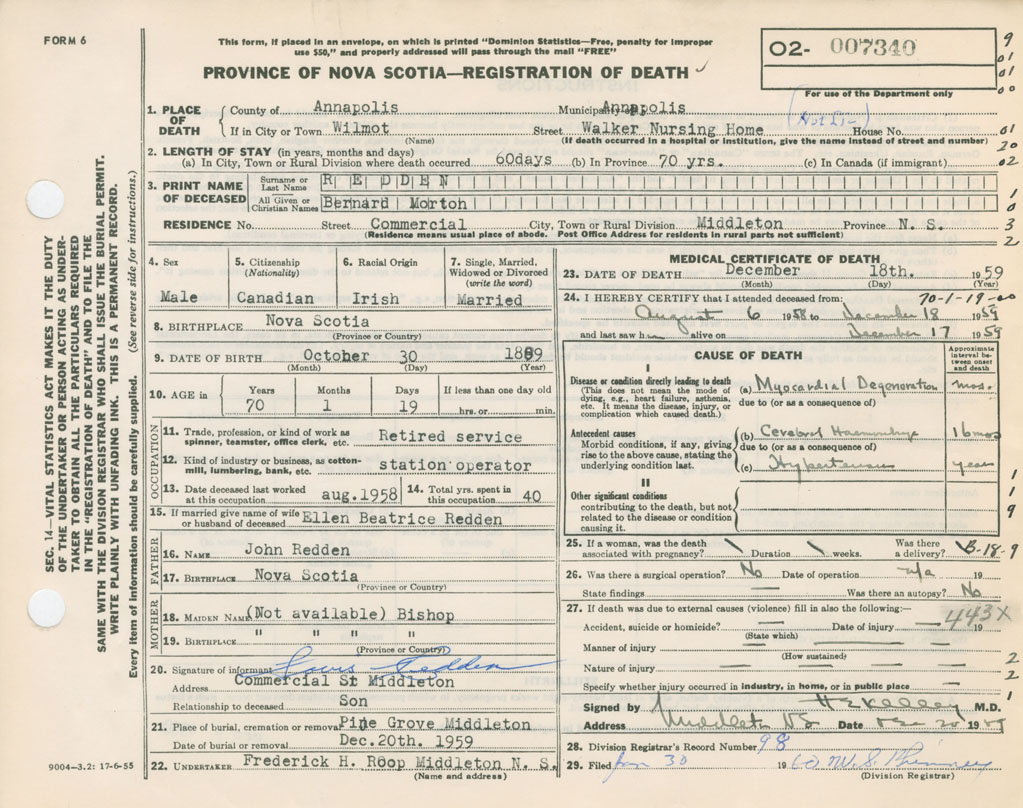 FORM 6
This form, if placed in an envelope, on which is printed "Dominion Statistics—Free, penalty for improper
use $50," and properly addressed will pass through the mail "FREE"
PROVINCE OF NOVA SCOTIA—REGISTRATION OF DEATH
02- 007340
For use of the Department only
9
01
01
00
1. PLACE OF DEATH
County of Annapolis Municipality of Annapolis
If in City or Town Wilmot Street Walker Nursing Home House No.
(Name) (If death occurred in a hospital or institution, give the name instead of street and number)
01
20
02
2. LENGTH OF STAY (in years, months and days)
(a) In City, Town or Rural Division where death occurred 60days (b) In Province 70 yrs. (c) In Canada (if immigrant)
3. PRINT NAME OF DECEASED
Surname or Last Name REDDEN
All Given or Christian Names Bernard Morton
1
0
3
2
RESIDENCE No. Street Commercial City, Town or Rural Division Middleton Province N. S.
(Residence means usual place of abode. Post Office Address for residents in rural parts not sufficient)
SEC. 14—VITAL STATISTICS ACT MAKES IT THE DUTY
OF THE UNDERTAKER OR PERSON ACTING AS UNDER-
TAKER TO OBTAIN ALL THE PARTICULARS REQUIRED
IN THE "REGISTRATION OF DEATH" AND TO FILE THE
SAME WITH THE DIVISION REGISTRAR WHO SHALL ISSUE THE BURIAL PERMIT.
WRITE PLAINLY WITH UNFADING INK. THIS IS A PERMANENT RECORD.
Every item of information should be carefully supplied. (See reverse side for instructions.)
4. Sex
Male
5. Citizenship
(Nationality)
Canadian
6. Racial Origin
Irish
7. Single, Married,
Widowed or Divorced
(write the word)
Married
8. BIRTHPLACE Nova Scotia
(Province or Country)
9. DATE OF BIRTH October 30 1889
(Month) (Day) (Year)
10. AGE in
Years Months Days If less than one day old
70 1 19 hrs. or min.
OCCUPATION
11. Trade, profession, or kind of work as
spinner, teamster, office clerk, etc. Retired service
12. Kind of industry or business, as cotton-
mill, lumbering, bank, etc. station operator
13. Date deceased last worked
at this occupation aug.1958
14. Total yrs. spent in
this occupation 40
15. If married give name of wife
or husband of deceased Ellen Beatrice Redden
FATHER
16. NAME John Redden
17. BIRTHPLACE Nova Scotia
(Province or Country)
MOTHER
18. MAIDEN NAME (Not available) Bishop
19. BIRTHPLACE " " " "
(Province or Country)
20. Signature of informant Louis Redden
Address Commercial St Middleton
Relationship to deceased Son
21. Place of burial, cremation or removal Pine Grove Middleton
Date of burial or removal Dec.20th. 1959
22. UNDERTAKER Frederick H. Roop Middleton N. S.
(Name and address)
9004—3.2: 17-6-55
MEDICAL CERTIFICATE OF DEATH
23. DATE OF DEATH December 18th. 1959
(Month) (Day) (Year)
24. I HEREBY CERTIFY that I attended deceased from: 70-1-19-00
August 6 1958 to December 18 1959
and last saw h alive on December 17 1959
CAUSE OF DEATH
Approximate
interval be-
tween onset
and death
I
Disease or condition directly leading to death
(This does not mean the mode of
dying, e.g., heart failure, asthenia,
etc. It means the disease, injury, or
complication which caused death.)
(a) Myocardial Degeneration mos.
due to (or as a consequence of)
Antecedent causes
Morbid conditions, if any, giving
rise to the above cause, stating the
underlying condition last.
(b) Cerebral Haemorrhage 16 mos
due to (or as a consequence of)
(c) Hypertension years
II
Other significant conditions
contributing to the death, but not
related to the disease or condition
causing it.
1
1
9
25. If a woman, was the death
associated with pregnancy? Duration weeks. Was there
a delivery? B-18-9
26. Was there a surgical operation? No Date of operation n/a 19
State findings Was there an autopsy? No
27. If death was due to external causes (violence) fill in also the following:—
443X
Accident, suicide or homicide? Date of injury 19
(State which)
Manner of injury
(How sustained)
Nature of injury
2
2
Specify whether injury occurred in industry, in home, or in public place
1
Signed by M.D.
Address Middleton NS Date Dec 20 1959
28. Division Registrar's Record Number 98
29. Filed Jan 30 1960
(Division Registrar)